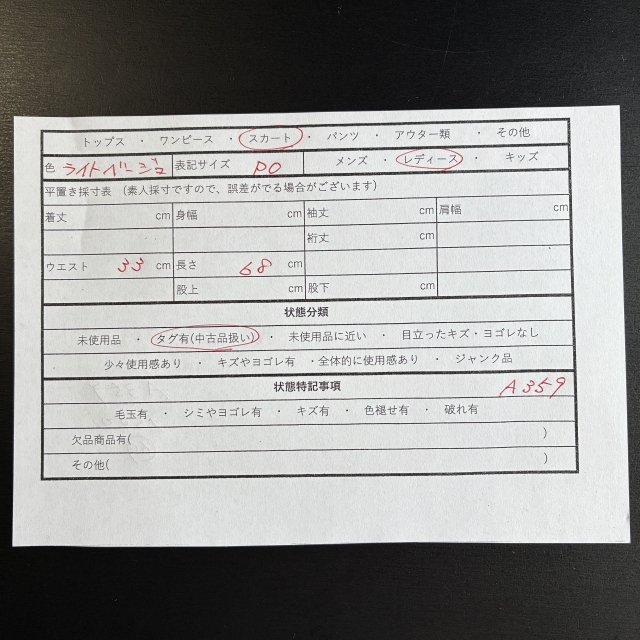 トップス ・ ワンピース ・ スカート ・ パンツ ・ アウター類 ・ その他
色 ライトベージュ 表記サイズ PO メンズ ・ レディース ・ キッズ
平置き採寸表 （素人採寸ですので、誤差がでる場合がございます）
着丈 cm 身幅 cm 袖丈 cm 肩幅 cm
裄丈 cm
ウエスト 33 cm 長さ 68 cm
股上 cm 股下 cm
状態分類
未使用品 ・ タグ有(中古品扱い) ・ 未使用品に近い ・ 目立ったキズ・ヨゴレなし
少々使用感あり ・ キズやヨゴレ有 ・全体的に使用感あり ・ ジャンク品
状態特記事項 A359
毛玉有 ・ シミやヨゴレ有 ・ キズ有 ・ 色褪せ有 ・ 破れ有
欠品商品有( )
その他( )